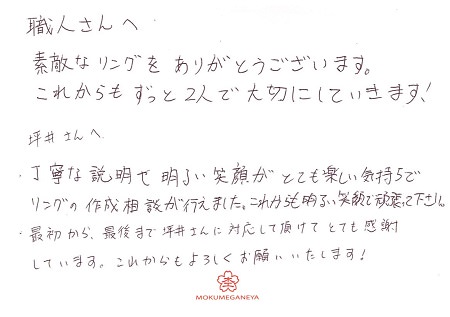 職人さんへ
素敵なリングをありがとうございます。
これからもずっと2人で大切にしていきます!
坪井さんへ
・丁寧な説明で明るい笑顔がとても楽しい気持ちで
リングの作成相談が行えました。これからも明るい笑顔で頑張って下さい。
・最初から、最後まで坪井さんに対応して頂けてとても感謝
しています。これからもよろしくお願いいたします!
MOKUMEGANEYA